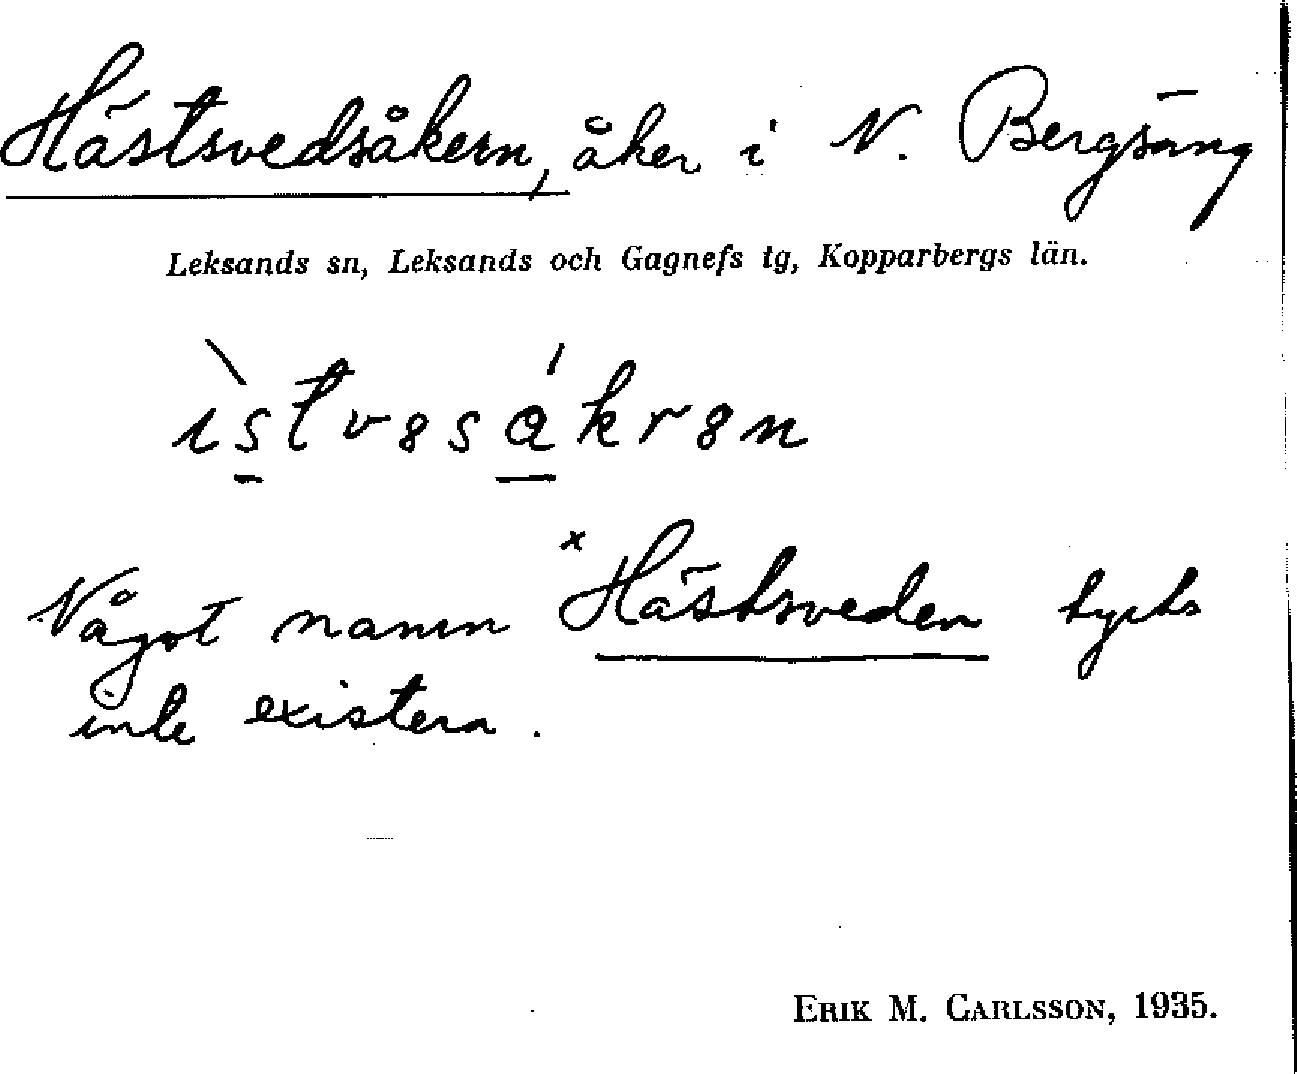 Hästsvedsåkern, åker i N. Bergsäng
Leksands sn, Leksands och Gagnefs tg, Kopparbergs län.
ìstvəsákrən
Något namn ˣHästsveden tycks
inte existera.
ERIK M. CARLSSON, 1935.